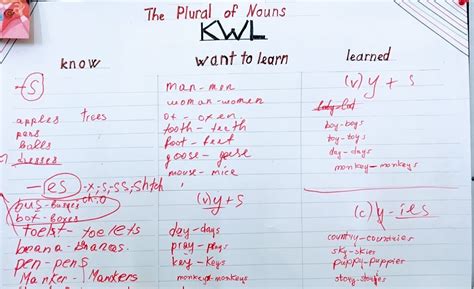 The Plural of Nouns
KWL
know
want to learn
learned
-s
apples trees
pens
balls
-es -x,-s,-ss,sh,tch
ch,o
bus-busses
box-boxes
banana-bananas
pen-pens
Marker-Markers
man-men
woman-women
ox-oxen
tooth-teeth
foot-feet
goose-geese
mouse-mice
(v)y+s
day-days
pray-prays
key-keys
monkey-monkeys
(v) y+s
boy-boys
toy-toys
day-days
monkey-monkeys
(c)y-ies
country-countries
sky-skies
puppy-puppies
story-stories